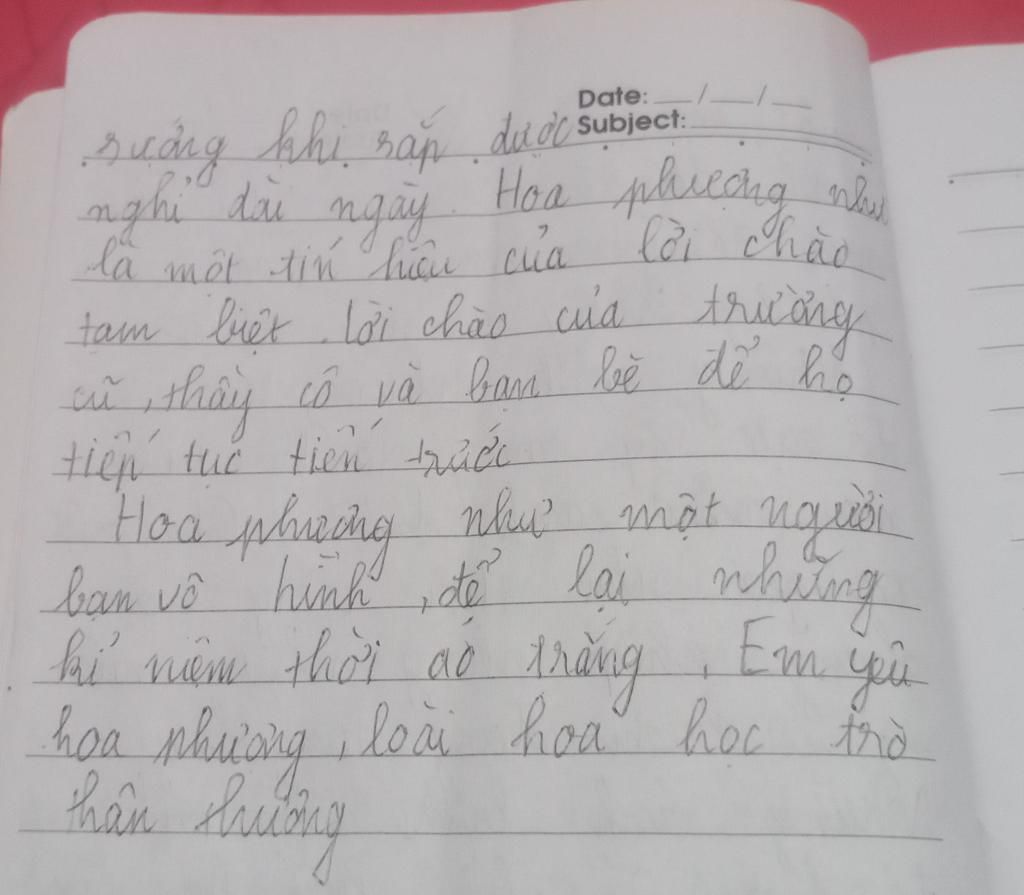 Date: __/__/__
Subject:
sướng khi sắp được
nghỉ dài ngày. Hoa phượng như
là một tín hiệu của lời chào
tạm biệt. lời chào của trường
cũ, thầy cô và bạn bè để họ
tiếp tục tiến trước
Hoa phượng như một người
bạn vô hình, để lại những
kỉ niệm thời áo trắng. Em yêu
hoa phượng, loài hoa học trò
thân thương